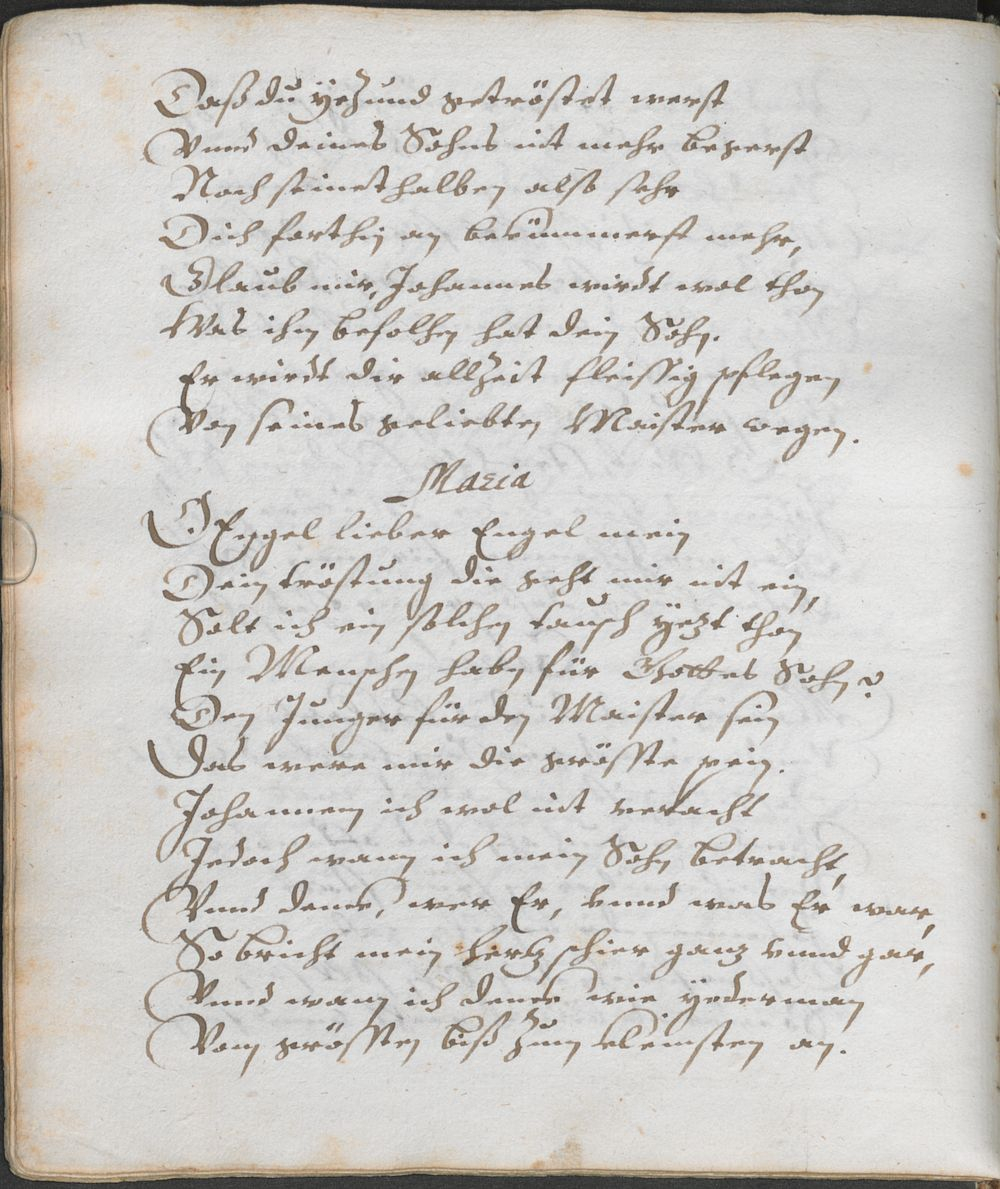 Daß du yezund getröstet werst
Vnnd deines Sohns nit mehr begerst
Noch seinethalben also sehr
Dich forthin an bekümmerst mehr,
Glaub mir, Johannes wirdt wol thon
Was ihm befolhen hat dein Sohn.
Er wirdt dir allzeit fleissig pflegen
Von seines geliebten Maister wegen.
Maria
O Engel lieber Engel mein
Dein tröstung die geht mir nit ein,
Solt ich ein solchen tausch yezt thon
Ein Menschen habn für Gottes Sohn?
Den Junger für den Maister sein
Das were mir die gröste pein.
Johannem ich wol nit veracht
Jedoch wann ich mein Sohn betracht,
Vnnd denck, wer Er, vnnd was Er war,
So bricht mein hertz schier ganz vnnd gar,
Vnnd wann ich denck wie yederman
Vom grösten biß zum kleinsten an.